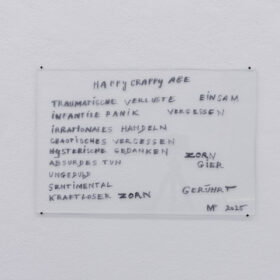 HAPPY CRAPPY AGE
TRAUMATISCHE VERLUSTE EINSAM
INFANTILE PANIK VERGESSEN
IRRATIONALES HANDELN
CHAOTISCHES VERGESSEN
HYSTERISCHE GEDANKEN ZORN
ABSURDES TUN GIER
UNGEDULD
SENTIMENTAL GERÜHRT
KRAFTLOSER ZORN
2025